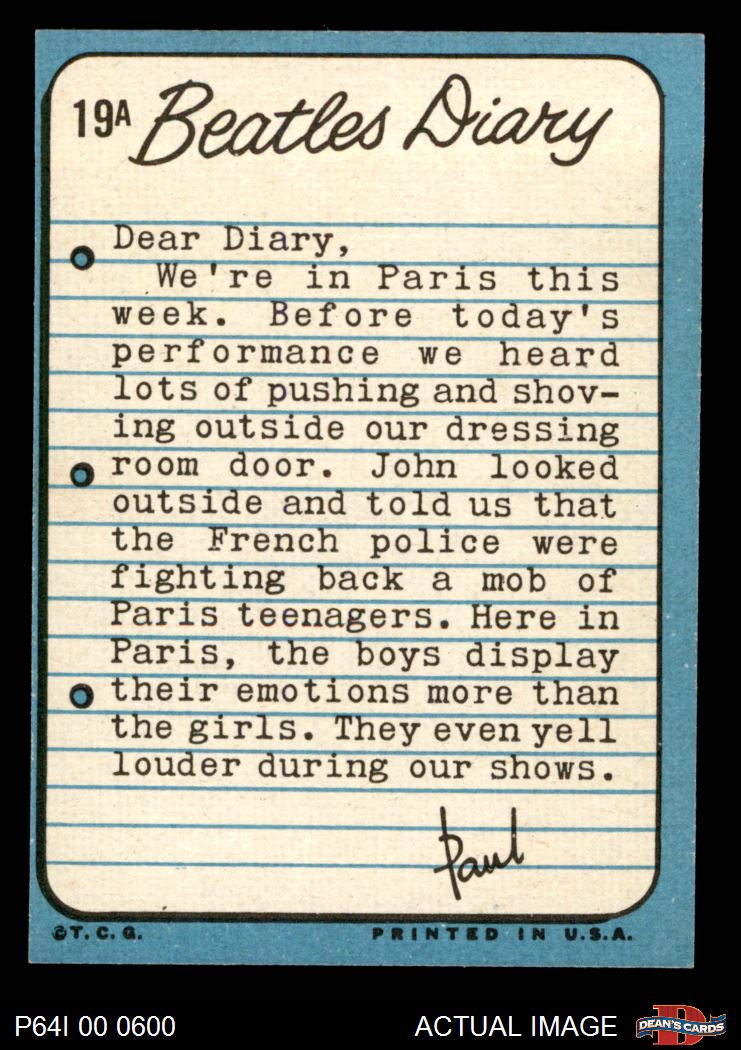 19A Beatles Diary
Dear Diary,
We're in Paris this
week. Before today's
performance we heard
lots of pushing and shov-
ing outside our dressing
room door. John looked
outside and told us that
the French police were
fighting back a mob of
Paris teenagers. Here in
Paris, the boys display
their emotions more than
the girls. They even yell
louder during our shows.
Paul
©T. C. G. PRINTED IN U.S.A.
P64I 00 0600 ACTUAL IMAGE D DEAN'S CARDS